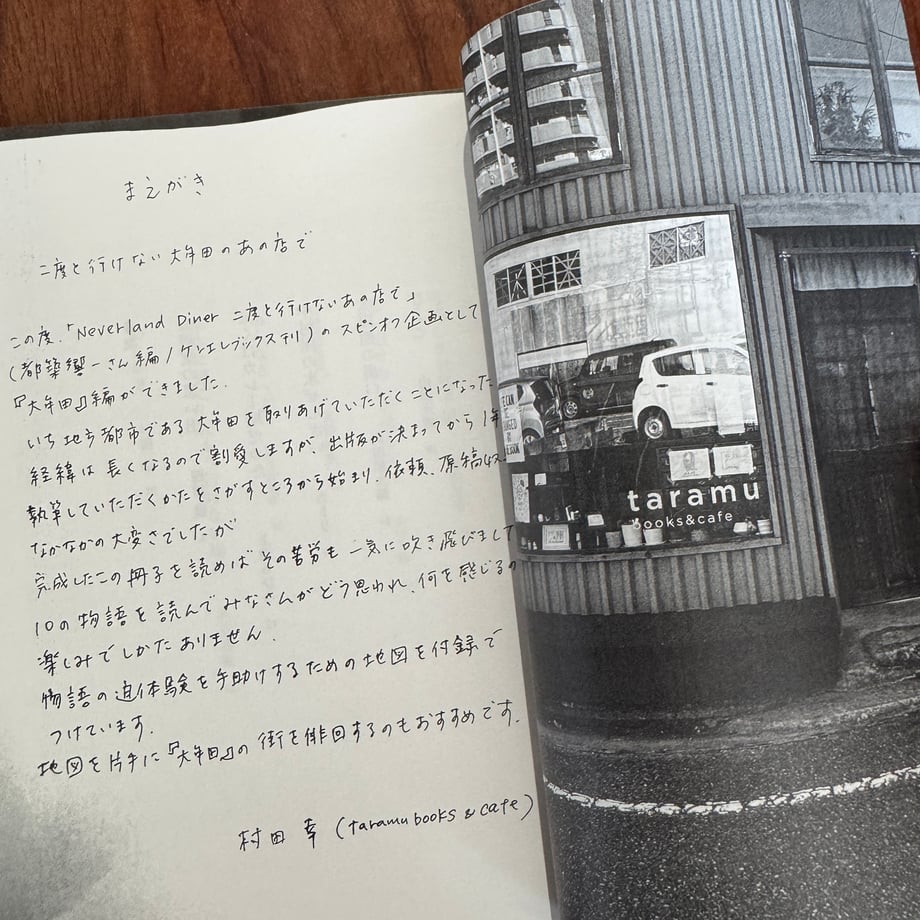 まえがき
二度と行けない大牟田のあの店で
この度、「Neverland Diner 二度と行けないあの店で」
(都築響一さん編/ケンエレブックス刊)のスピンオフ企画として
『大牟田』編ができました.
いち地方都市である大牟田を取りあげていただくことになった
経緯は長くなるので割愛しますが、出版が決まってから1年
執筆していただくかたをさがすところから始まり、依頼、原稿
なかなかの大変さでしたが
完成したこの冊子を読めばその苦労も一気に吹き飛びまして
10の物語を読んでみなさんがどう思われ、何を感じるの
楽しみでしかたありません.
物語の追体験を手助けするための地図を付録で
つけています.
地図を片手に『大牟田』の街を徘回するのもおすすめです.
村田 幸 (taramu books & cafe)
taramu
books&cafe